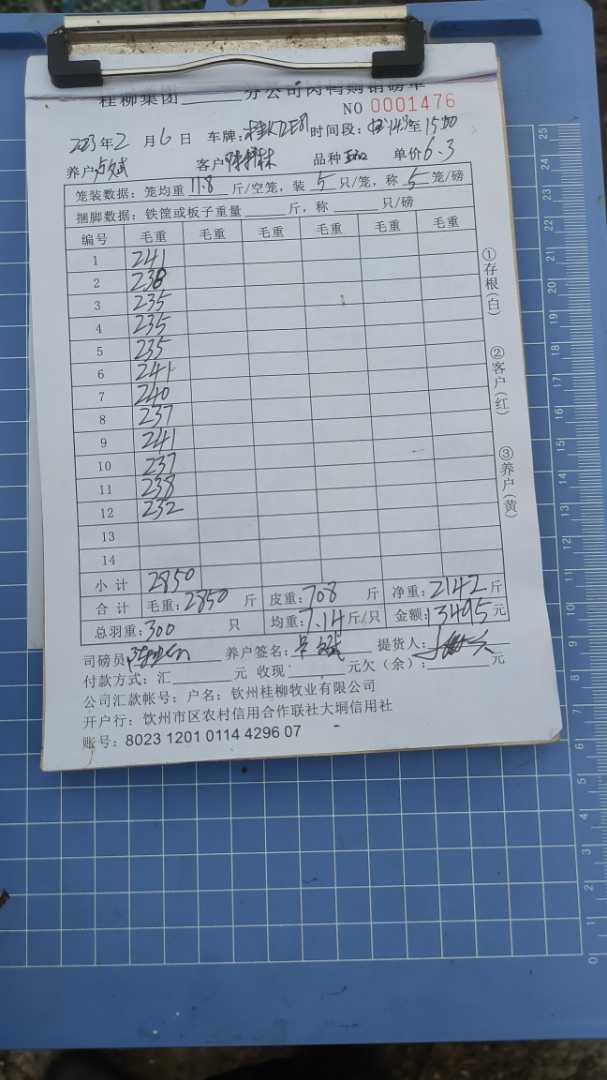 桂柳集团______分公司肉鸭购销磅单
NO 0001476
2023年2月6日 车牌: 时间段: 至15:00
养户 客户 品种 单价6.3
笼装数据:笼均重11.8斤/空笼,装5只/笼,称5笼/磅
捆脚数据:铁筐或板子重量______斤,称______只/磅
编号 毛重 毛重 毛重 毛重 毛重
1 241
2 238
3 235
4 235
5 235
6 241
7 240
8 237
9 241
10 237
11 238
12 232
13
14
小计 2850
合计 毛重:2850斤 皮重:708斤 净重:2142斤
总羽重:300只 均重:7.14斤/只 金额:13495元
司磅员 养户签名: 提货人:
付款方式:汇______元 收现______元欠(余):______元
公司汇款帐号:户名:钦州桂柳牧业有限公司
开户行:钦州市区农村信用合作联社大垌信用社
账号:8023 1201 0114 4296 07
①存根(白)
②客户(红)
③养户(黄)
25
22
21
20
19
18
17
16
15
14
13
12
11
10
9
8
7
6
5
4
3
2
1
0